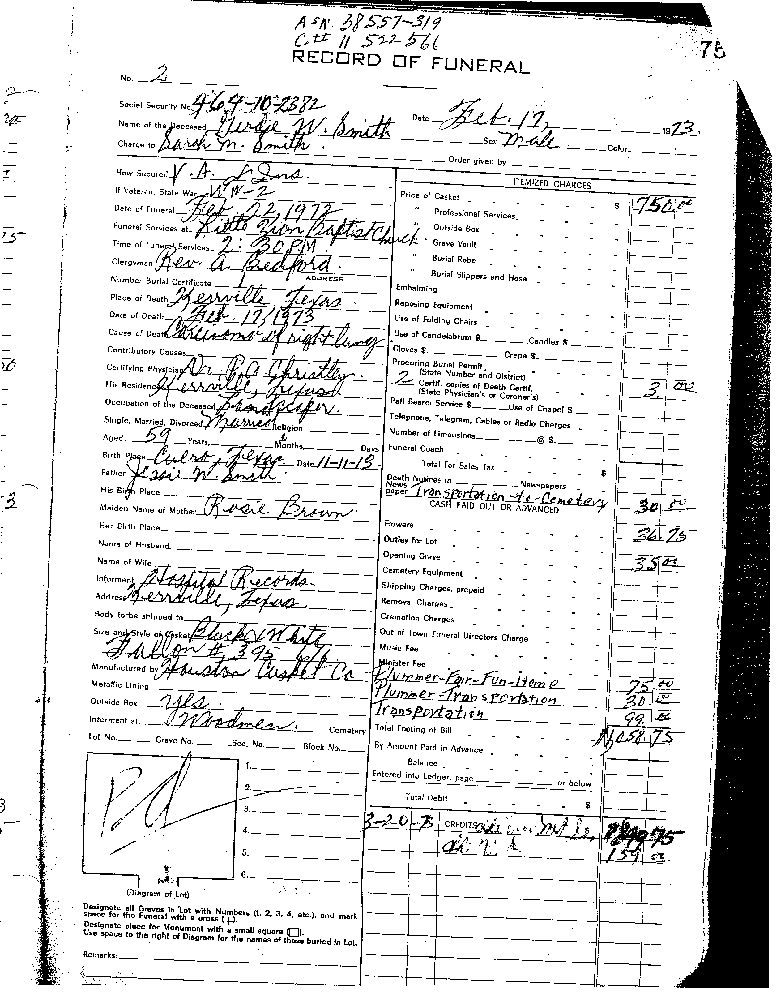 ASN. 38557-319
C## 11 522 566
75
RECORD OF FUNERAL
No. 2
Social Security No. 464-10-2382
Name of the Deceased W. Smith
Date Feb. 17, 1973.
Charge to Sarah M. Smith
Sex Male Color
Order given by
How Secured V.A. & Ins.
If Veteran, State War WW-2
Date of Funeral Feb 22, 1973
Funeral Services at Little Zion Baptist Church
Time of Funeral Services 2:30 PM
Clergyman Rev. A. Bedford.
ADDRESS
Number Burial Certificate
Place of Death Kerrville, Texas
Date of Death Feb. 17, 1973
Cause of Death Carcinoma of right lung
Contributory Causes
Certifying Physician Dr. Christley
His Residence Kerrville, Texas
Occupation of the Deceased
Single, Married, Divorced Married Religion
Aged 59 Years, & Months, Days
Birth Place Cuero, Texas Date 11-11-13
Father Jessie W. Smith
His Birth Place
Maiden Name of Mother Rosie Brown
Her Birth Place
Name of Husband
Name of Wife
Informant Hospital Records
Address Kerrville, Texas
Body to be shipped to
Size and Style of Casket Black & White
# 395
Manufactured by Houston Casket Co
Metallic Lining
Outside Box yes
Interment at Woodmen Cemetery
Lot No. Grave No. Sec. No. Block No.
ITEMIZED CHARGES
Price of Casket $ 750.00
" Professional Services
" Outside Box
" Grave Vault
" Burial Robe
" Burial Slippers and Hose
Embalming
Reposing Equipment
Use of Folding Chairs
Use of Candelabrum $ Candles $
Gloves $ Crepe $
Procuring Burial Permit
(State Number and District)
2 Certif. copies of Death Certif. 3 00
(State Physician's or Coroner's)
Pall Bearer Service $ Use of Chapel $
Telephone, Telegram, Cables or Radio Charges
Number of Limousines @ $
Funeral Coach
Total for Sales Tax $
Death Notices in Newspapers
News paper Transportation-to-Cemetery 30 00
CASH PAID OUT OR ADVANCED
Flowers 36.75
Outlay for Lot
Opening Grave 35 00
Cemetery Equipment
Shipping Charges, prepaid
Remova Charges
Cremation Charges
Out of Town Funeral Directors Charge
Music Fee
Minister Fee
Plummer-Fair-Fun-Home 75 00
Plummer-Transportation 30 00
Transportation 99 00
Total Footing of Bill $1,058.75
By Amount Paid in Advance
Balance
Entered into Ledger, page or below
Total Debit $
Pd
1.
2.
3.
4.
5.
6.
3-20-73 CREDITS
159 00
(Diagram of Lot)
Designate all Graves in Lot with Numbers (1, 2, 3, 4, etc.), and mark
space for the Funeral with a cross (+).
Designate place for Monument with a small square (□).
Use space to the right of Diagram for the names of those buried in Lot.
Remarks: